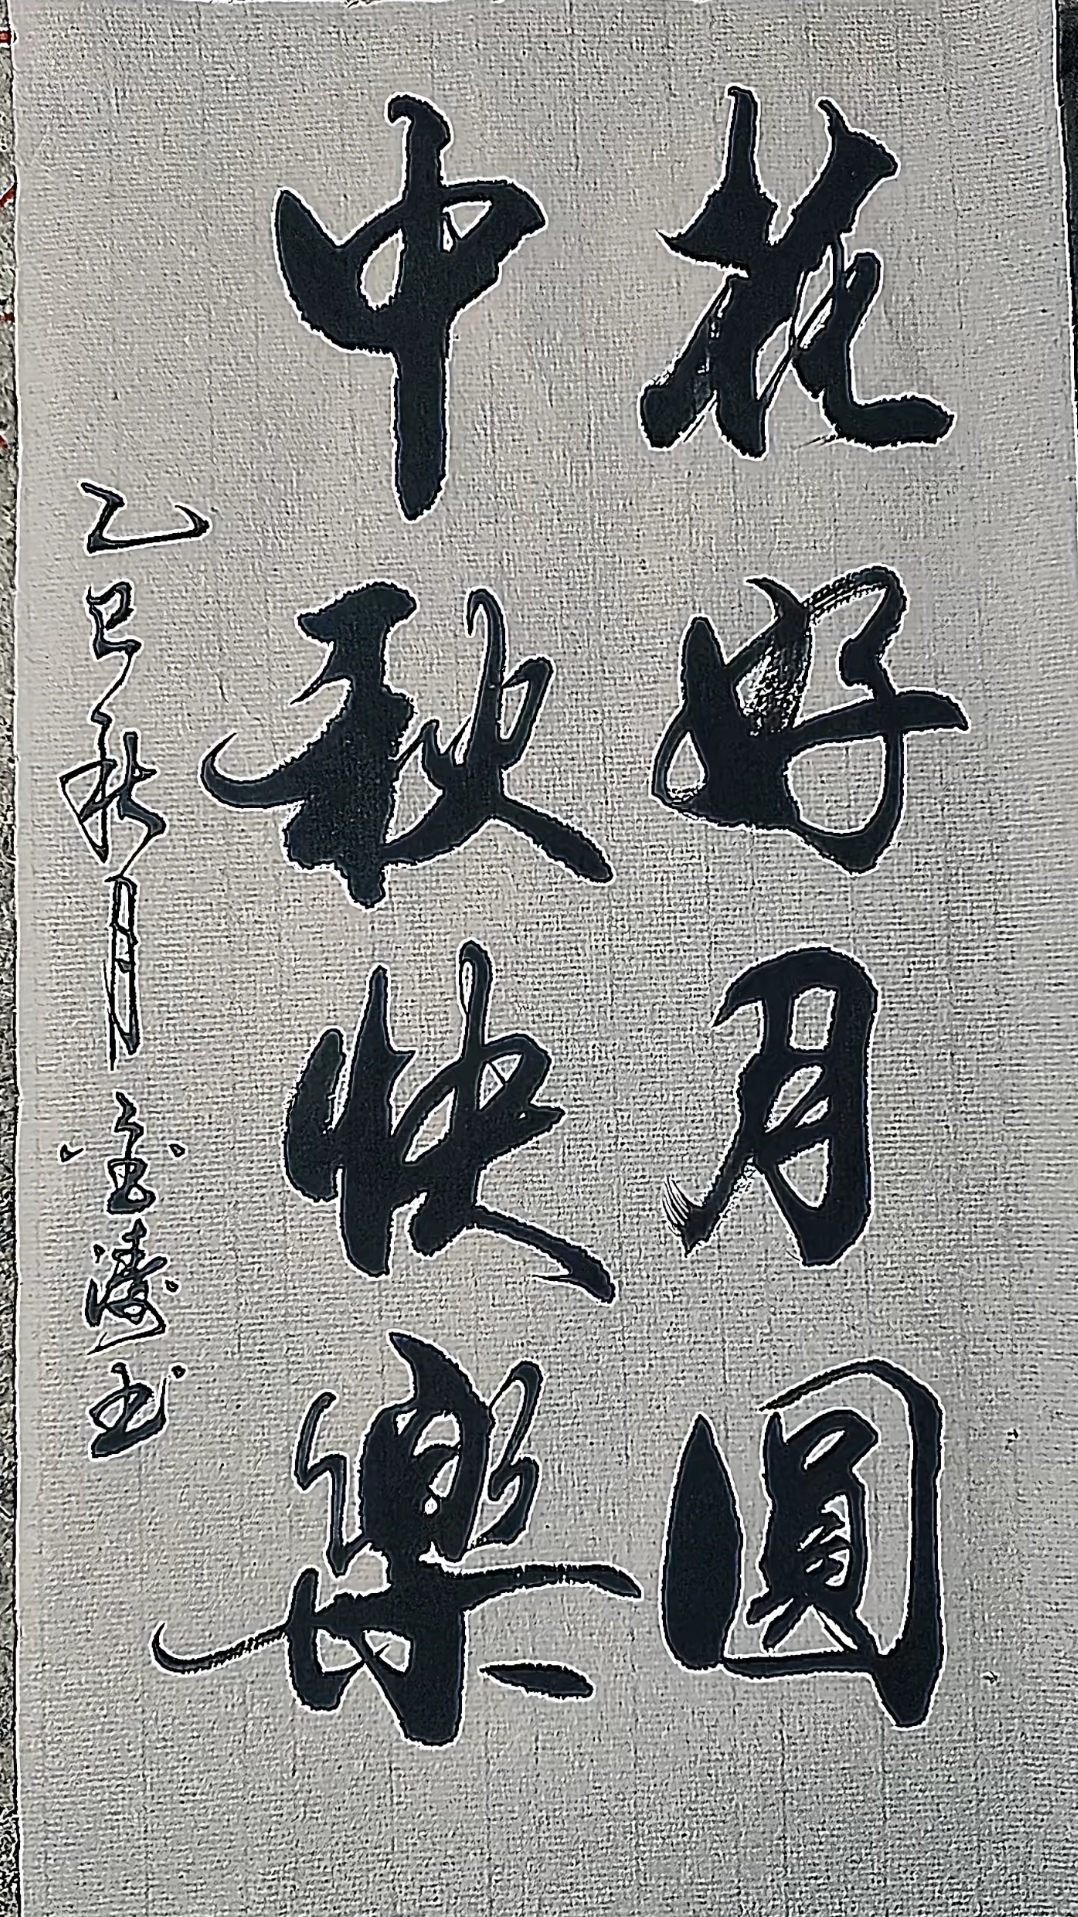 花好月圓
中秋快樂
乙巳秋月金濤书